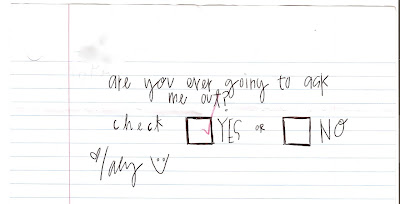 are you ever going to ask
me out?
check YES or NO